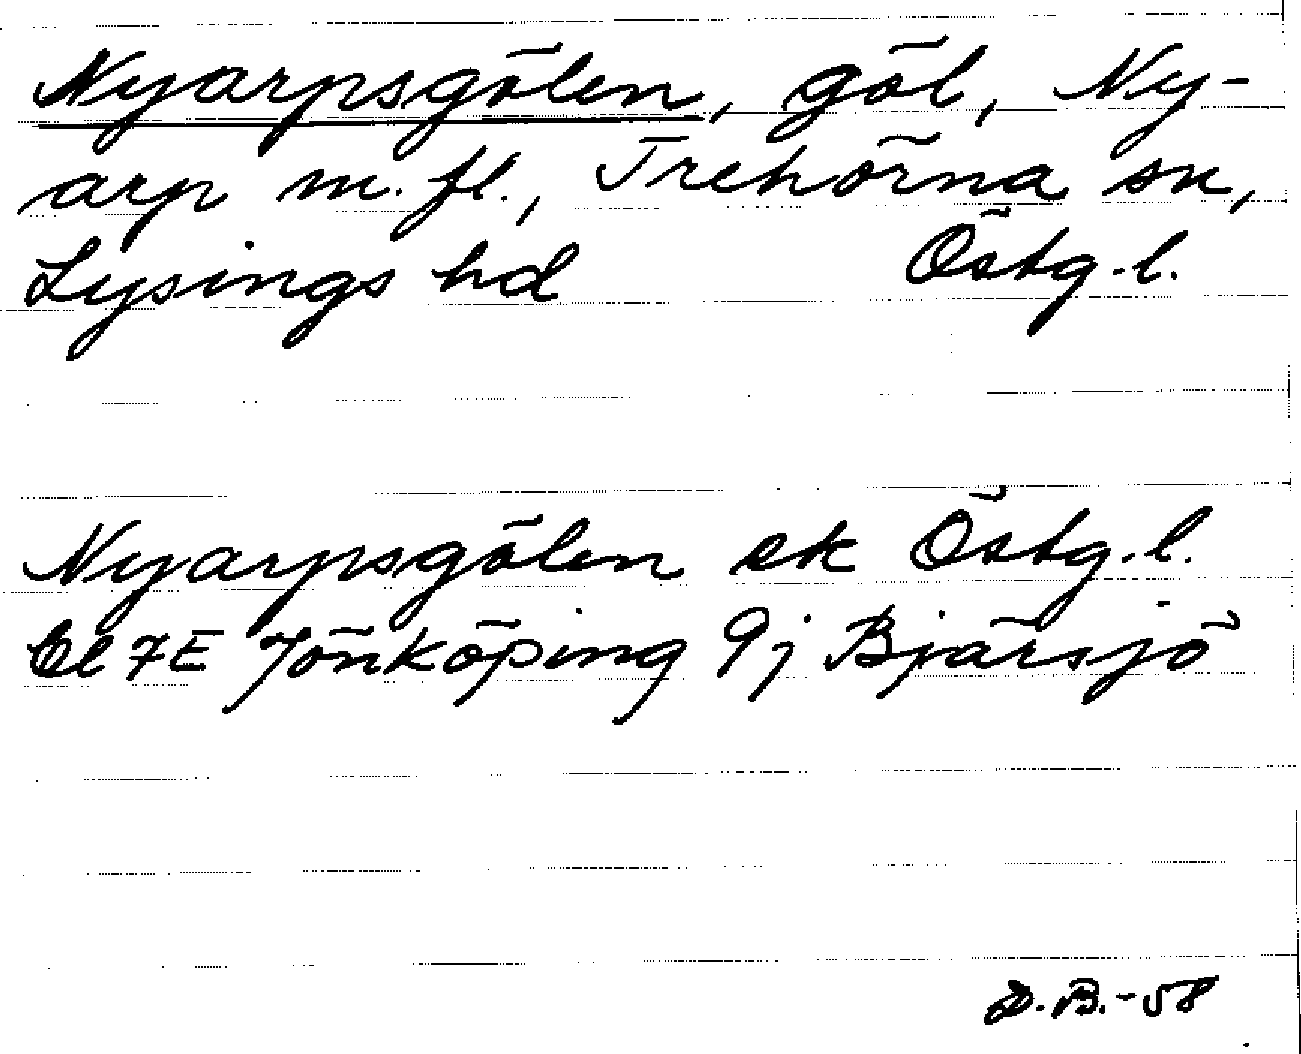 Nyarpsgölen, göl, Ny-
arp m. fl., Trehörna sn,
Lysings hd Östg. l.
Nyarpsgölen ek Östg. l.
Bl 7E Jönköping 9j Bjärsjö
D. B. -58